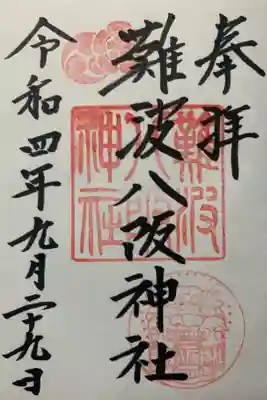 奉拝
難波八阪神社
難波八阪神社
令和四年九月二十九日